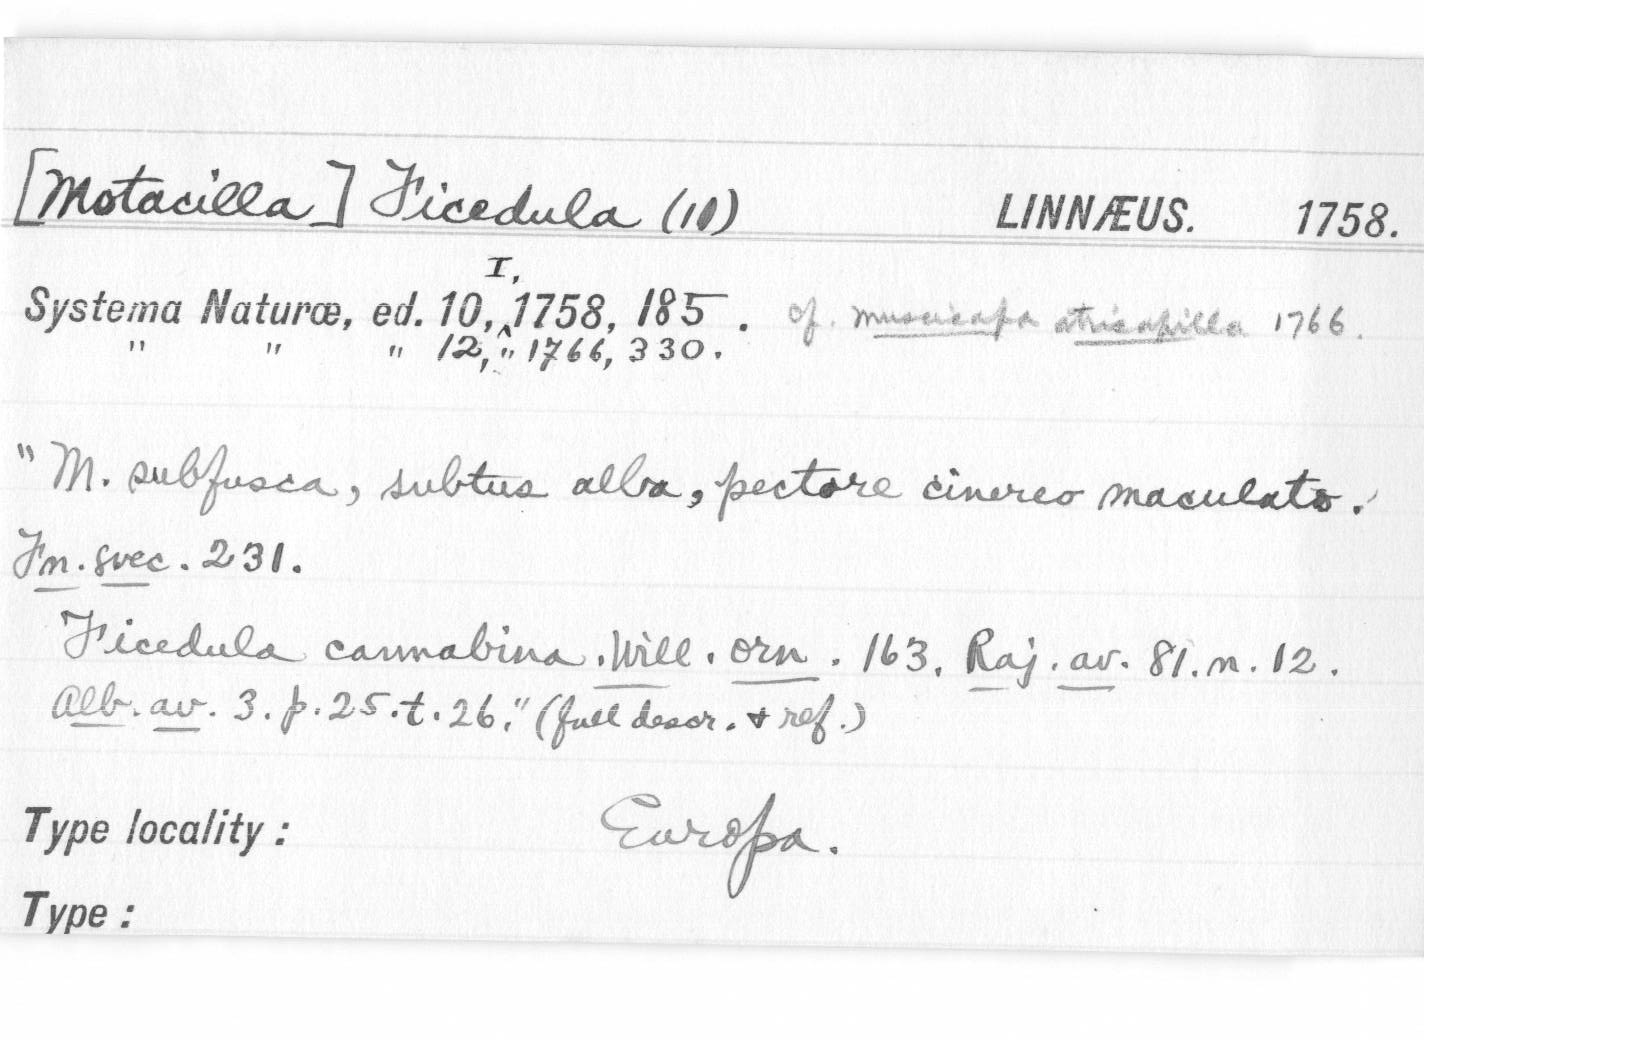 [Motacilla] Ficedula (10) LINNÆUS. 1758.
Systema Naturæ, ed. 10, I, 1758, 185. cf. muscicapa atricapilla 1766.
" " " 12, " 1766, 330.
"M. subfusca, subtus alba, pectore cinereo maculato.
Fn. svec. 231.
Ficedula cannabina. Will. orn. 163. Raj. av. 81. n. 12.
Alb. av. 3. p. 25. t. 26." (full descr. & ref.)
Type locality: Europa.
Type: